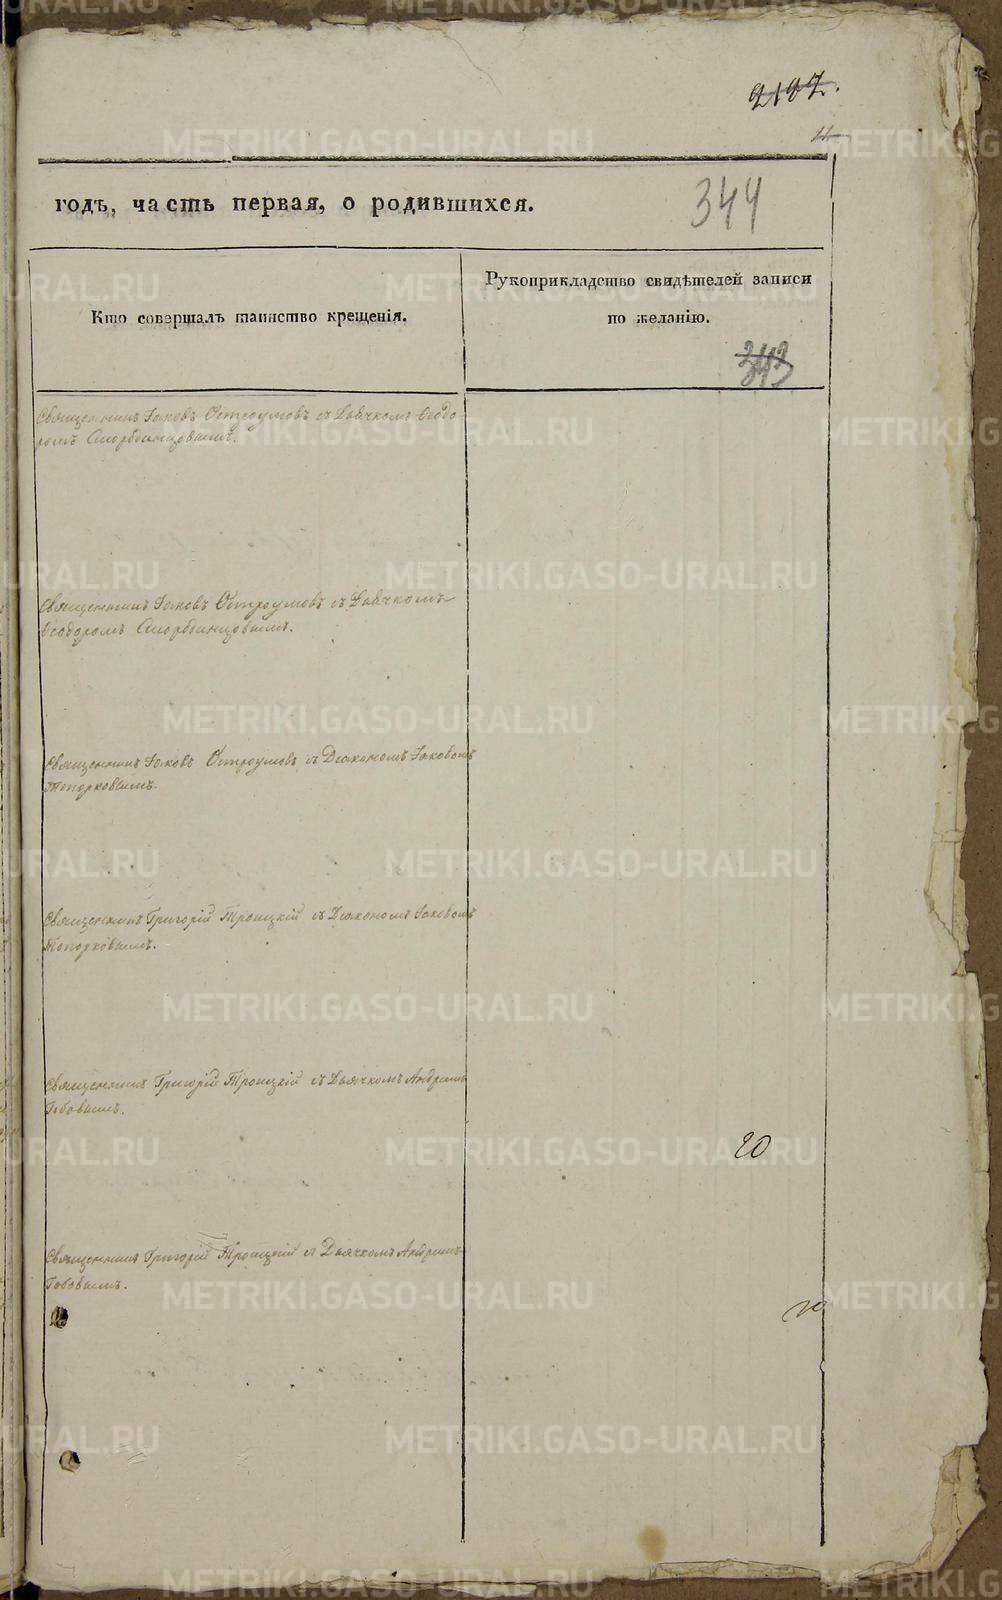 2197.
11
годъ, часть первая, о родившихся.
344
Кто совершалъ таинство крещенія.
Рукоприкладство свидѣтелей записи
по желанію.
343
Священникъ Іаковъ Остроумовъ съ Дьячкомъ Ѳеодо
ромъ
Священникъ Іаковъ Остроумовъ съ Дьячкомъ
Ѳеодоромъ
Священникъ Іаковъ Остроумовъ съ Діакономъ Іаковомъ
Топорковымъ.
Священникъ Григорій Троицкій съ Діакономъ Іаковомъ
Топорковымъ.
Священникъ Григорій Троицкій съ Дьячкомъ Андреемъ
20
Священникъ Григорій Троицкій съ Дьячкомъ Андреемъ
METRIKI.GASO-URAL.RU